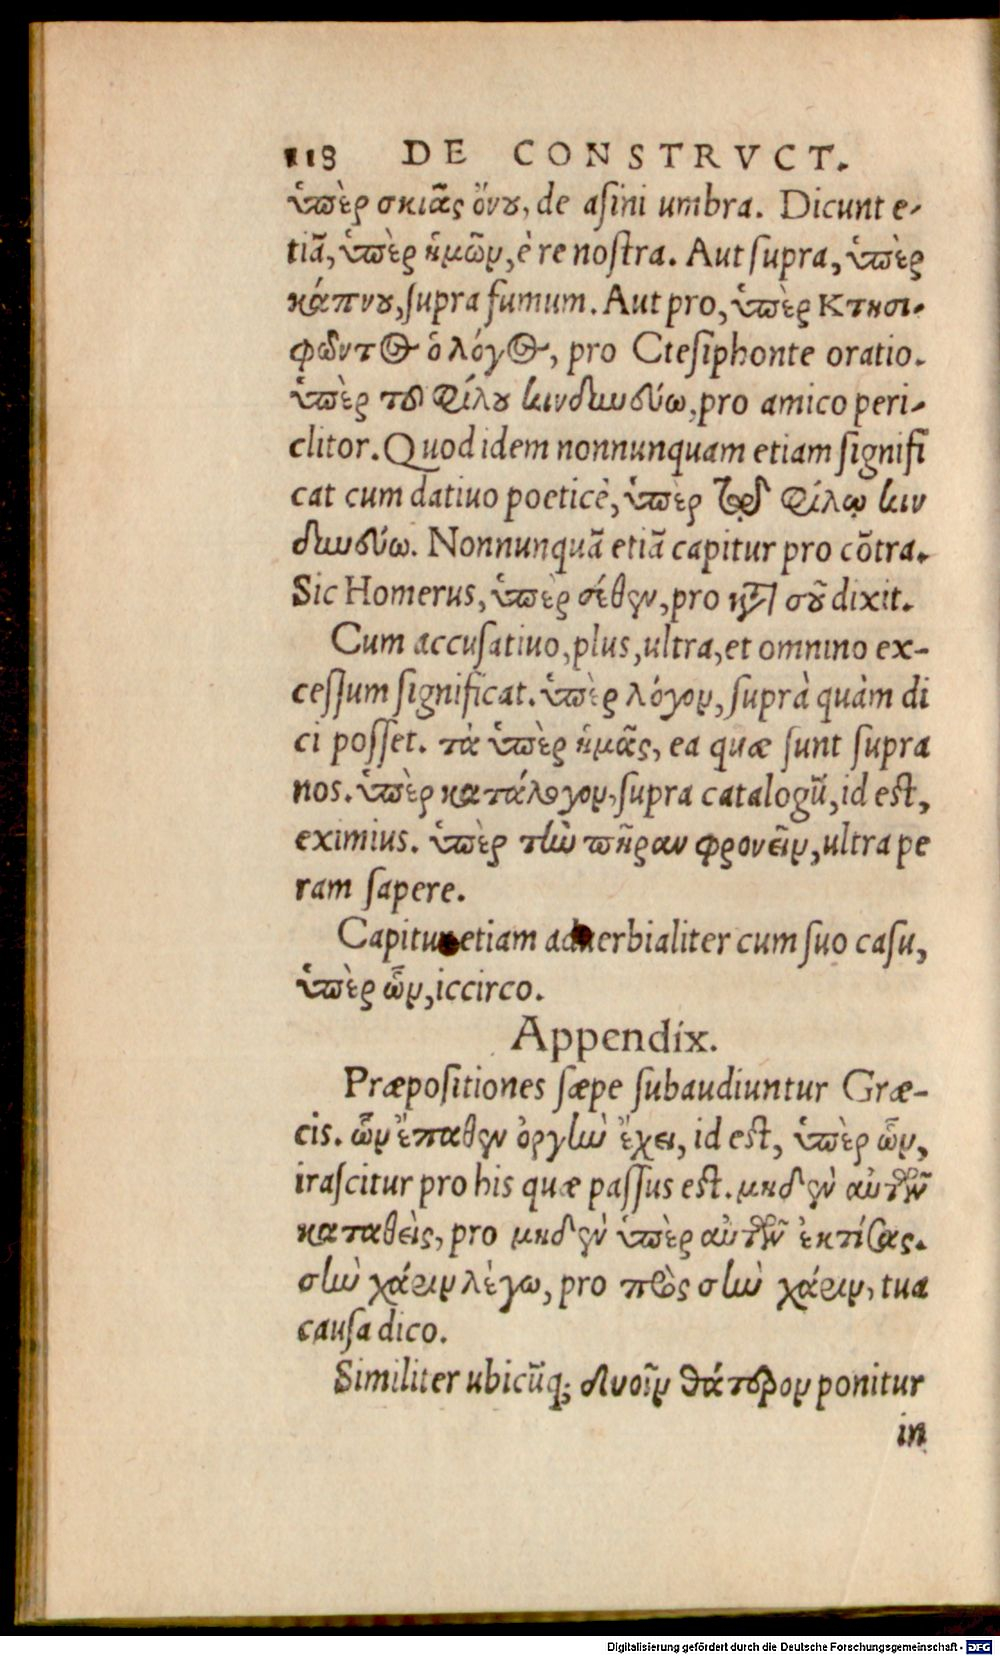 118 DE CONSTRVCT.
ὑπὲρ σκιᾶς ὄνου, de asini umbra. Dicunt e-
tiã, ὑπὲρ ἡμῶν, è re nostra. Aut supra, ὑπὲρ
κάπνου, supra fumum. Aut pro, ὑπὲρ Κτησι-
φῶντος ὁ λόγος, pro Ctesiphonte oratio.
ὑπὲρ τοῦ φίλου κινδωυδύω, pro amico peri-
clitor. Quod idem nonnunquam etiam signifi
cat cum datiuo poeticè, ὑπὲρ τῷ φίλῳ κιν
δωυδύω. Nonnunquã etiã capitur pro cõtra.
Sic Homerus, ὑπὲρ σέθεν, pro κατὰ σοῦ dixit.
Cum accusatiuo, plus, ultra, et omnino ex-
cessum significat. ὑπὲρ λόγον, suprà quàm di
ci posset. τὰ ὑπὲρ ἡμᾶς, ea quæ sunt supra
nos. ὑπὲρ κατάλογον, supra catalogũ, id est,
eximius. ὑπὲρ τὴν πῆραν φρονεῖν, ultra pe
ram sapere.
Capitur etiam aduerbialiter cum suo casu,
ὑπὲρ ὧν, iccirco.
Appendix.
Præpositiones sæpe subaudiuntur Græ-
cis. ὧν ἔπαθεν ὀργὴν ἔχει, id est, ὑπὲρ ὧν,
irascitur pro his quæ passus est. μηδὲν αὐτῶν
καταθεὶς, pro μηδὲν ὑπὲρ αὐτῶν ἐκτίσας.
σὴν χάριν λέγω, pro πρὸς σὴν χάριν, tua
causa dico.
Similiter ubicũq; δυοῖν θάτερον ponitur
in
Digitalisierung gefördert durch die Deutsche Forschungsgemeinschaft - DFG